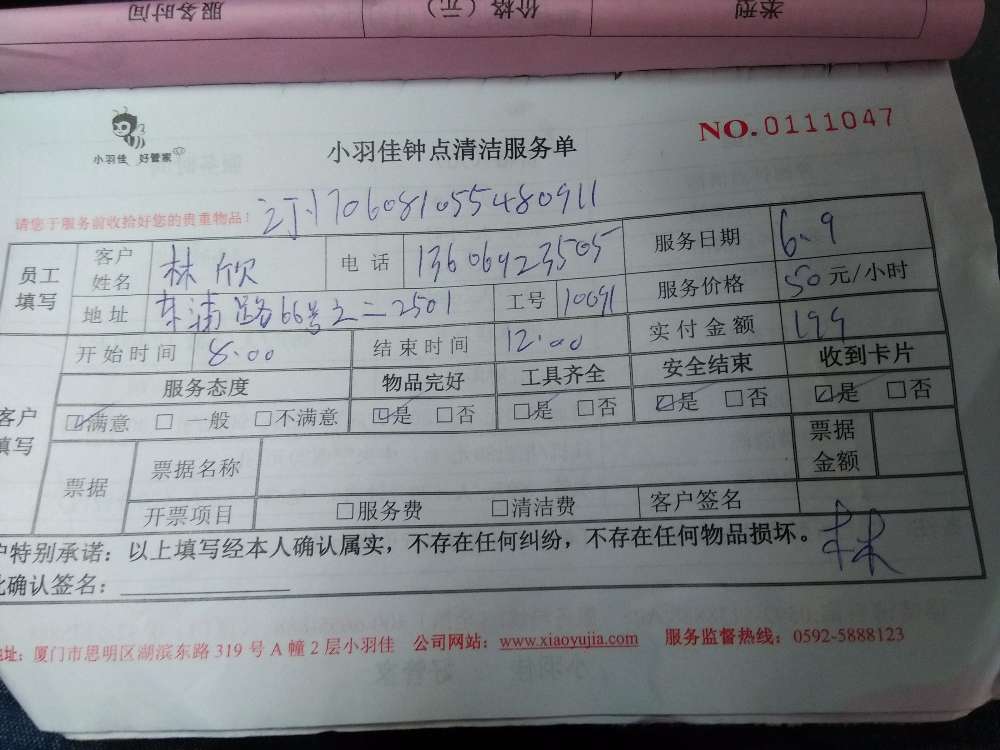 服务时间 价格（元） 类型
小羽佳 好管家
小羽佳钟点清洁服务单
NO.0111047
请您于服务前收拾好您的贵重物品！
170608105548091
员工填写 客户姓名 林欣 电话 13606923505 服务日期 6.9
地址 东浦路66号之二2501 工号 10091 服务价格 50元/小时
开始时间 8:00 结束时间 12:00 实付金额 199
服务态度 物品完好 工具齐全 安全结束 收到卡片
客户填写 ☑满意 □一般 □不满意 ☑是 □否 ☑是 □否 ☑是 □否 ☑是 □否
票据 票据名称 票据金额
开票项目 □服务费 □清洁费 客户签名
户特别承诺：以上填写经本人确认属实，不存在任何纠纷，不存在任何物品损坏。 林
此确认签名：
地址：厦门市思明区湖滨东路319号A幢2层小羽佳 公司网站：www.xiaoyujia.com 服务监督热线：0592-5888123